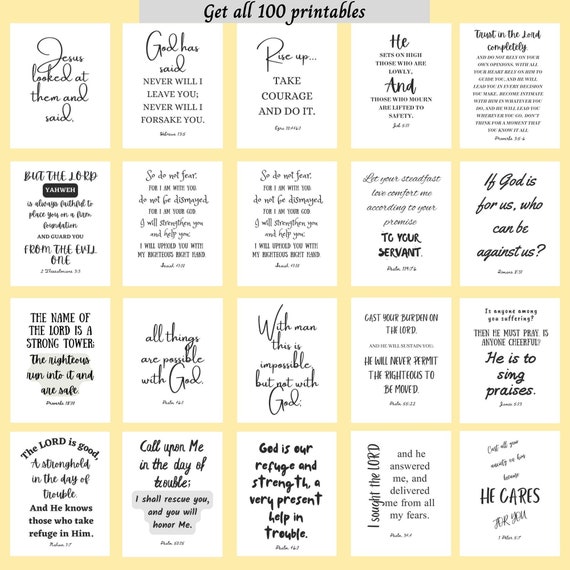 Get all 100 printables
Jesus
looked at
them and
said,
God has
said
NEVER WILL I
LEAVE YOU;
NEVER WILL I
FORSAKE YOU.
Hebrews 13:5
Rise up...
TAKE
COURAGE
AND DO IT.
Ezra 10:4
He
SETS ON HIGH
THOSE WHO ARE
LOWLY,
And
THOSE WHO MOURN
ARE LIFTED TO
SAFETY.
Job 5:11
Trust in the Lord
completely,
AND DO NOT RELY ON YOUR
OWN OPINIONS, WITH ALL
YOUR HEART RELY ON HIM TO
GUIDE YOU, AND HE WILL
LEAD YOU IN EVERY DECISION
YOU MAKE. BECOME INTIMATE
WITH HIM IN WHATEVER YOU
DO, AND HE WILL LEAD YOU
WHEREVER YOU GO. DON'T
THINK FOR A MOMENT THAT
YOU KNOW IT ALL
Proverbs 3:5-6
BUT THE LORD
YAHWEH
is always faithful to
place you on a firm
foundation
AND GUARD YOU
FROM THE EVIL
ONE
2 Thessalonians 3:3
So do not fear,
FOR I AM WITH YOU;
do not be dismayed,
FOR I AM YOUR GOD
I will strengthen you
and help you;
I WILL UPHOLD YOU WITH
MY RIGHTEOUS RIGHT HAND.
Isaiah 41:10
So do not fear,
FOR I AM WITH YOU;
do not be dismayed,
FOR I AM YOUR GOD.
I will strengthen you
and help you;
I WILL UPHOLD YOU WITH
MY RIGHTEOUS RIGHT HAND.
Isaiah 41:10
Let your steadfast
love comfort me
according to your
promise
TO YOUR
SERVANT.
Psalm 119:76
If God is
for us, who
can be
against us?
Romans 8:31
THE NAME OF
THE LORD IS A
STRONG TOWER;
The righteous
run into it and
are safe.
Proverbs 18:10
all things
are possible
with God.
With man
this is
impossible
but not with
God;
CAST YOUR BURDEN ON
THE LORD,
AND HE WILL SUSTAIN YOU;
HE WILL NEVER PERMIT
THE RIGHTEOUS TO
BE MOVED.
Psalm 55:22
Is anyone among
you suffering?
THEN HE MUST PRAY. IS
ANYONE CHEERFUL?
He is to
sing
praises.
James 5:13
The LORD is good,
A stronghold
in the day of
trouble.
And He knows
those who take
refuge in Him.
Nahum 1:7
Call upon Me
in the day of
trouble;
I shall rescue you,
and you will
honor Me.
Psalm 50:15
God is our
refuge and
strength, a
very present
help in
trouble.
Psalm 46:1
I sought the LORD
and he
answered
me, and
delivered
me from all
my fears.
Psalm 34:4
Cast all your
anxiety on him
because
HE CARES
FOR YOU
1 Peter 5:7